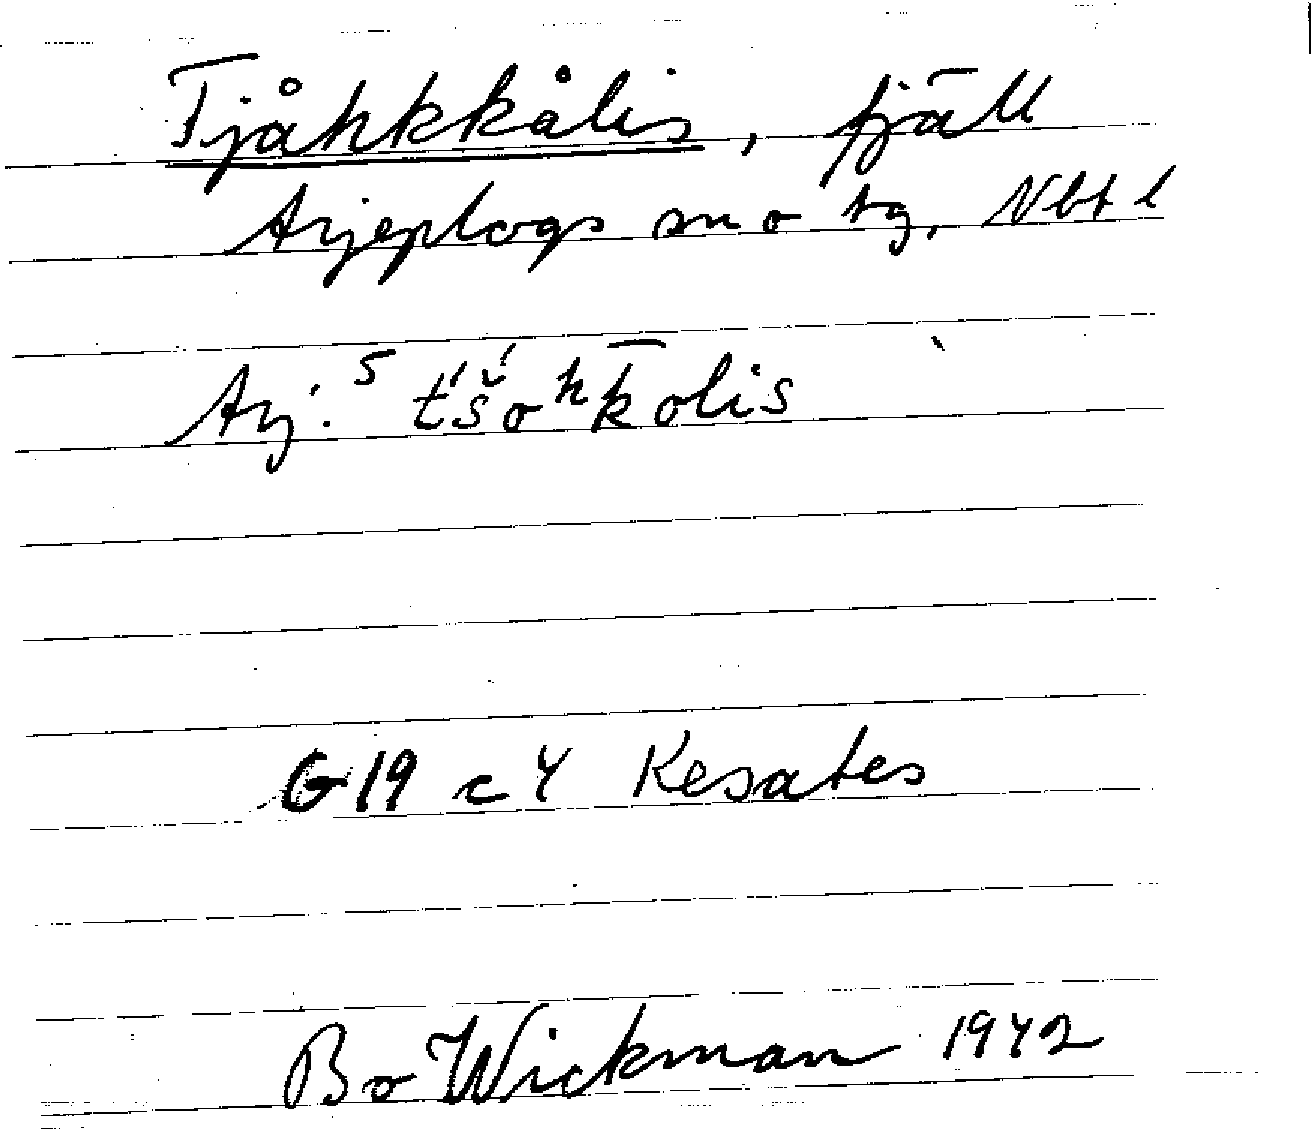 Tjåhkkålis, fjäll
Arjeplogs sn o tg, Nbt l
Arj.⁵ t́š́oʰk̄olis
G19 c 4 Kesates
Bo Wickman 1942